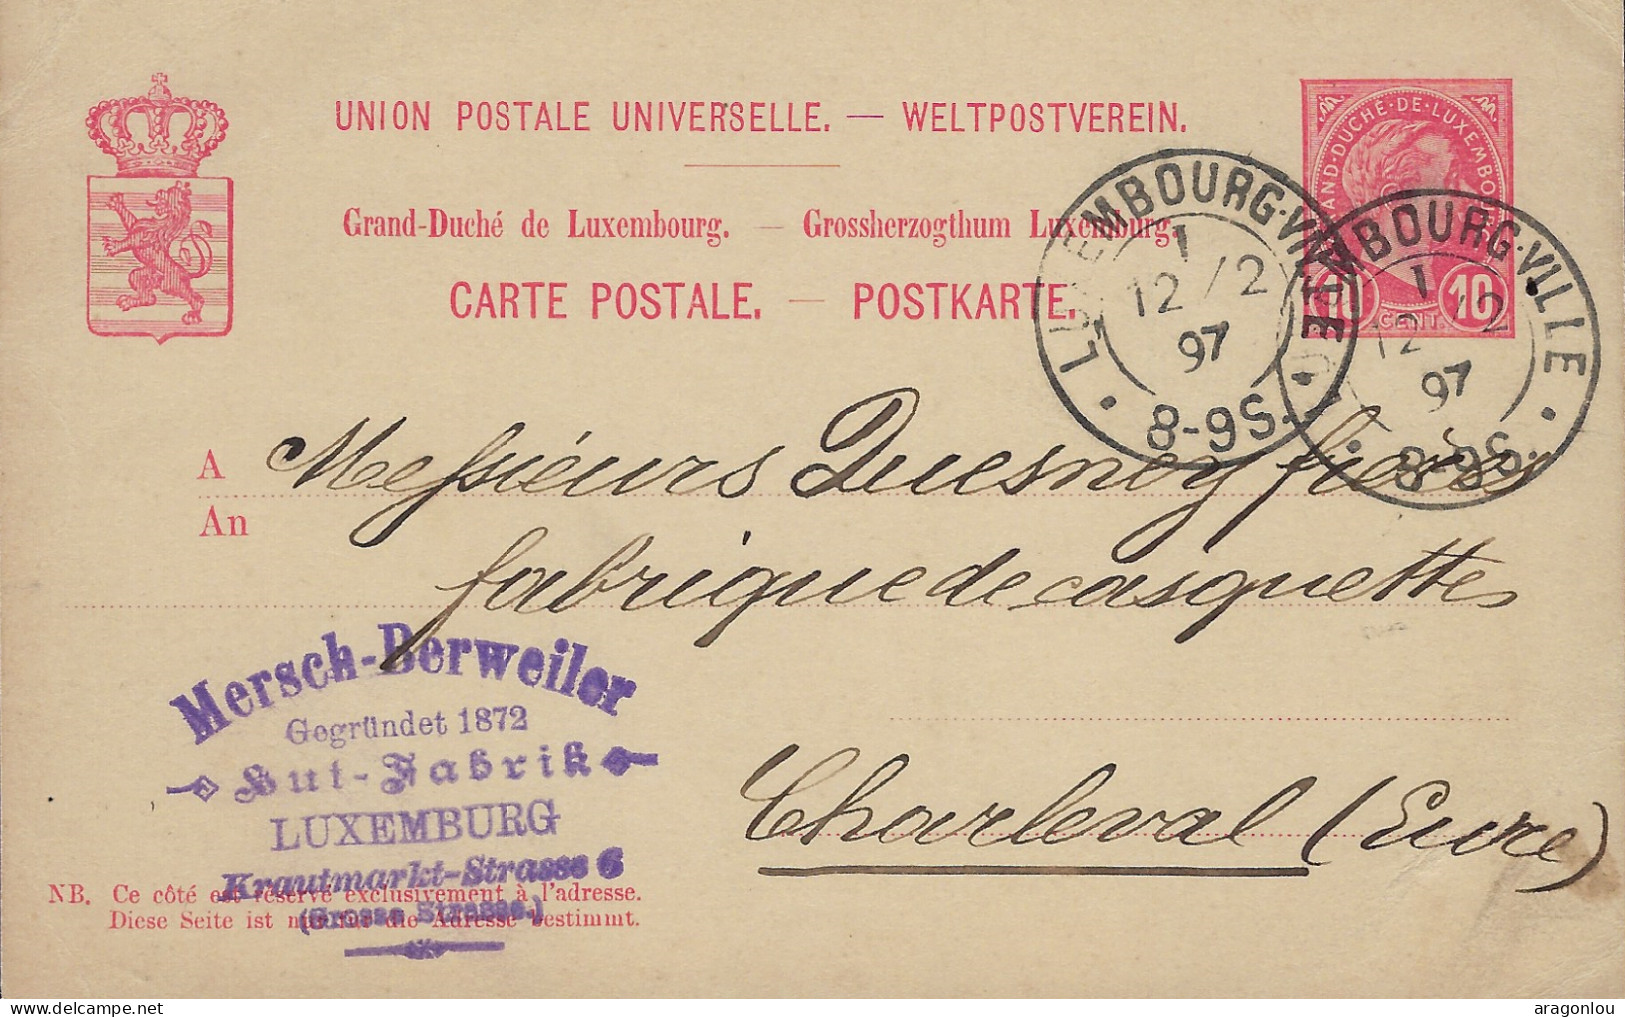 UNION POSTALE UNIVERSELLE. — WELTPOSTVEREIN.
Grand-Duché de Luxembourg. — Grossherzogthum Luxembourg.
CARTE POSTALE. — POSTKARTE.
GRAND-DUCHÉ-DE-LUXEMBOURG
10 CENT. 10
LUXEMBOURG-VILLE
1
12/2
97
8-9S.
LUXEMBOURG-VILLE
1
12/2
97
8-9S.
A Messieurs Duesnoy frères
An
fabrique de casquettes
Charleval (Eure)
Mersch-Berweiler
Gegründet 1872
Hut-Fabrik
LUXEMBURG
Krautmarkt-Strasse 6
(Grosse Strasse.)
NB. Ce côté est réservé exclusivement à l'adresse.
Diese Seite ist nur für die Adresse bestimmt.
aragonlou